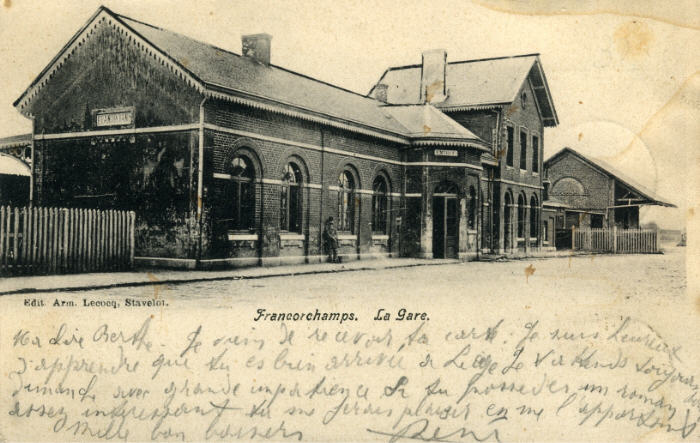 FRANCORCHAMPS
Edit. Arm. Lecocq, Stavelot.
Francorchamps. La Gare.
Berthe Je viens de recevoir ta carte Je suis heureux
d'apprendre que tu es bien arrivée à Je t'attends toujours
avec grande impatience Si tu possèdes un roman
assez intéressant tu me ferais plaisir en me l'apportant
Mille bon baisers René